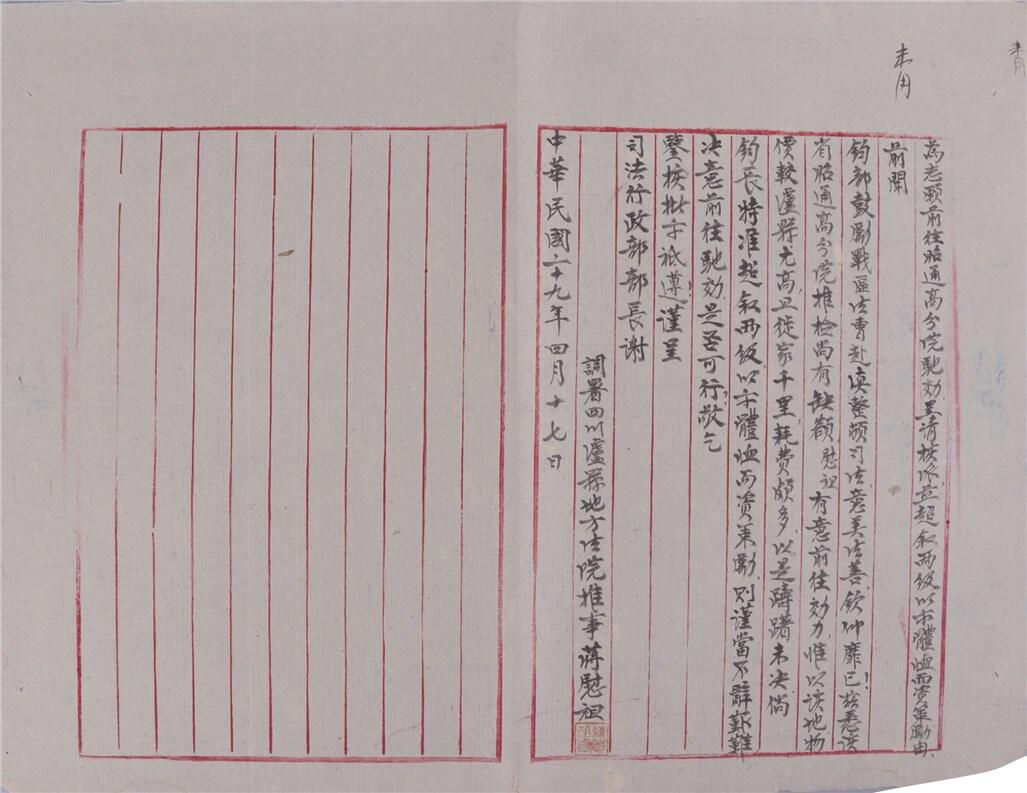 未用
未用
為志願前往昭通高分院馳効呈請核派並超敘兩級以示體恤而資策勵由
前聞
鈞部鼓勵戰區法曹赴滇整頓司法意美法善欽仰靡已茲悉該
省昭通高分院推檢尚有缺額慰祖有意前往効力惟以該地物
價較瀘縣尤高且徙家千里耗費頗多以是躊躇未決倘
鈞長特准超敘兩級以示體恤而資策勵則謹當不辭艱難
決意前往馳効是否可行敬乞
鑒核批示祇遵謹呈
司法行政部部長謝
調署四川瀘縣地方法院推事蔣慰祖
中華民國二十九年四月十七日